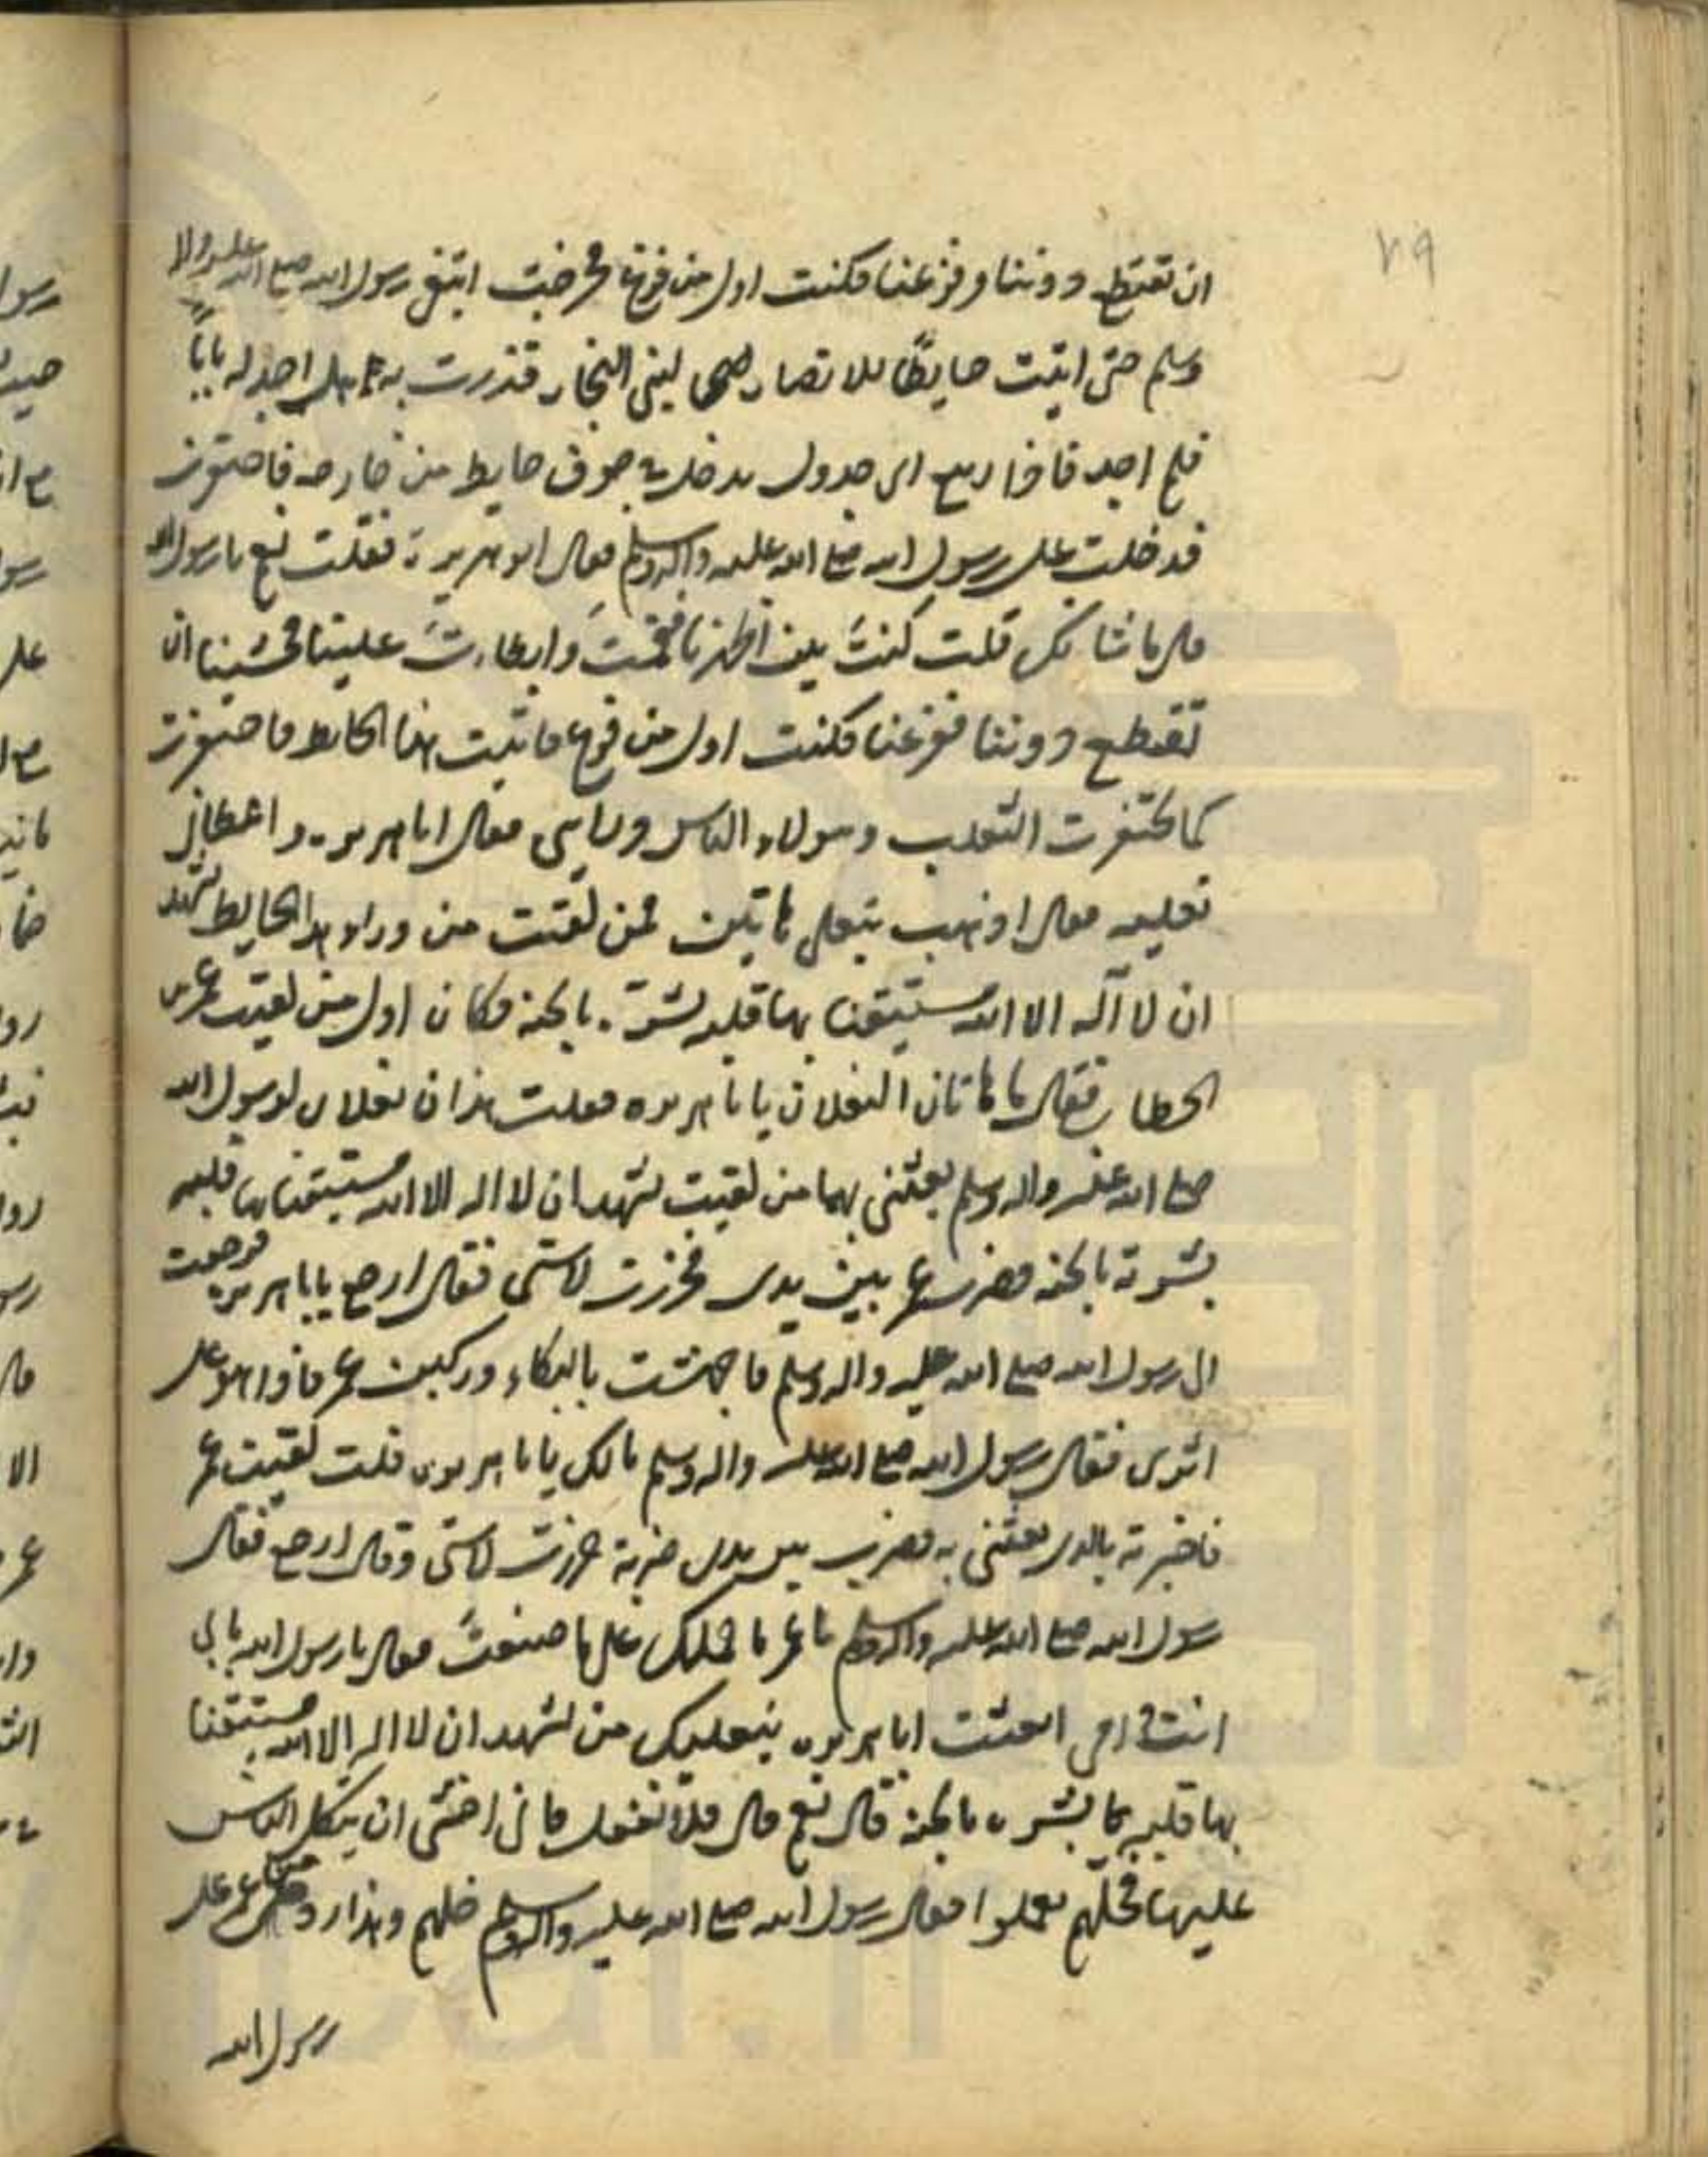 ۲۹
ان تقتطع دوننا وفزعنا فكنت اول من فزع فخرجت ابتغى رسول الله صلى الله عليه واله
وسلم حتى اتيت حايطًا للانصار لبنى النجار فدرت به هل اجد له بابًا
فلم اجد فاذا ربيع اى جدول يدخل فى جوف حايط من خارجه فاحتفزت
فدخلت على رسول الله صلى الله عليه واله وسلم فقال ابو هريرة فقلت نعم يا رسول الله
قال ما شانك قلت كنتَ بين اظهرنا فقمتَ وابطاءتَ علينا فخشينا ان
تقتطع دوننا ففزعنا فكنت اول من فزع فاتيت هذا الحايط فاحتفزت
كما تحتفزت الثعلب وهولاء الناس ورايى فقال ابا هريره واعطانى
نعليه فقال اذهب بنعلى هاتين فمن لقيت من وراء هذا الحايط يشهد
ان لا آله الا الله مستيقنا بها قلبه بشرّه بالجنه فكان اول من لقيت عمر بن
الخطاب فقال ما هاتان النعلان يابا هريره فقلت هذان نعلان لرسول الله
صلى الله عليه واله وسلم بعثنى بهما من لقيت يشهد ان لا اله الا الله مستيقنا بها قلبه
بشرته بالجنه فضرب عمر بين يدى فخررت لاستى فقال ارجع يابا هريره فرجعت
الى رسول الله صلى الله عليه واله وسلم فاجهشت بالبكاء وركبنى عمر فاذا هو على
اثرى فقال رسول الله صلى الله عليه واله وسلم مالك يابا هريره قلت لقيت عمر
فاخبرته بالذى بعثتنى به فضرب بين يدى ضربة خررت لاستى وقال ارجع فقال
رسول الله صلى الله عليه واله وسلم يا عمر ما حملك على ما صنعتَ فقال يا رسول الله بابى
انت وامى ابعثت ابا هريره بنعليك من يشهد ان لا اله الا الله مستيقنا
بها قلبه بشره بالجنه قال نعم قال فلا تفعل فانى اخشى ان يتكل الناس
عليها فخلهم يعملوا فقال رسول الله صلى الله عليه واله وسلم خلهم وهذا رد من عمر على
رسول الله